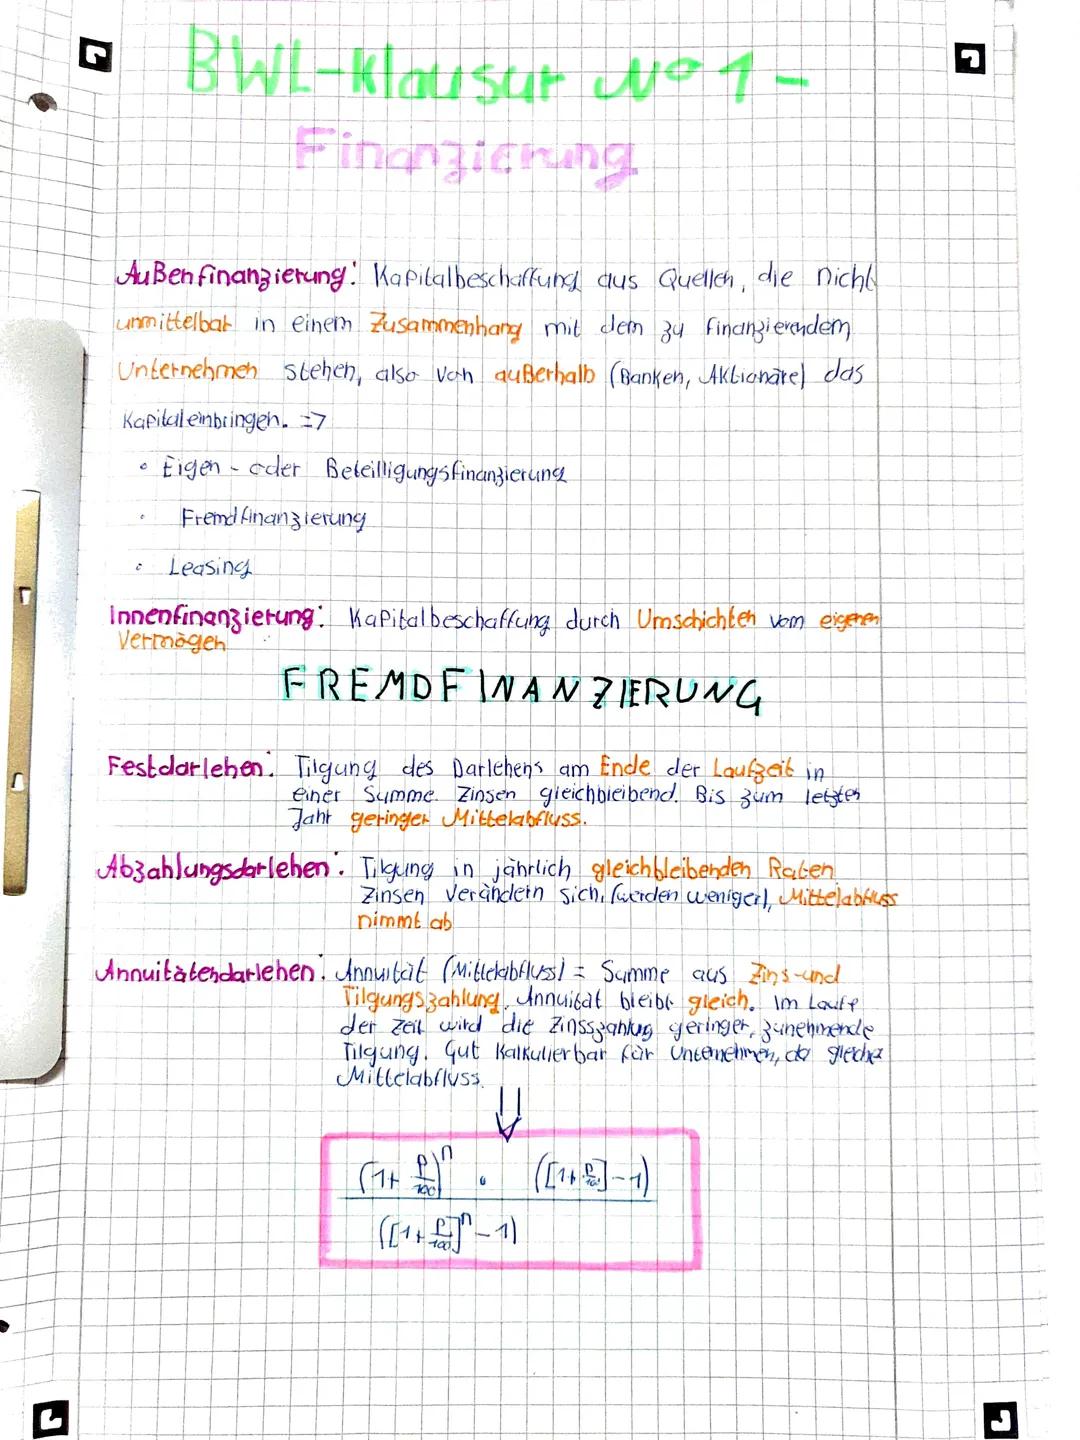 BWL-Klausur No 1 -
Finanzierung
Außenfinanzierung: Kapitalbeschaffung aus Quellen, die nicht
unmittelbar in einem Zusammenhang mit dem zu finanzierendem
Unternehmen stehen, also von außerhalb (Banken, Aktionäre) das
Kapital einbringen. =>
• Eigen- oder Beteilligungsfinanzierung
• Fremdfinanzierung
• Leasing
Innenfinanzierung: Kapitalbeschaffung durch Umschichten vom eigenen
Vermögen
FREMDFINANZIERUNG
Festdarlehen: Tilgung des Darlehens am Ende der Laufzeit in
einer Summe. Zinsen gleichbleibend. Bis zum letzten
Jahr geringer Mittelabfluss.
Abzahlungsdarlehen: Tilgung in jährlich gleichbleibenden Raten
Zinsen verändern sich, (werden weniger), Mittelabfluss
nimmt ab
Annuitätendarlehen: Annuität (Mittelabfluss) = Summe aus Zins-und
Tilgungszahlung. Annuität bleibt gleich. Im Laufe
der Zeit wird die Zinsszahlug geringer, zunehmende
Tilgung. Gut Kalkulierbar für Unternehmen, da gleicher
Mittelabfluss.
(1+ p/100)^n • ([1+ p/100] - 1)
([1+ p/100]^n - 1)